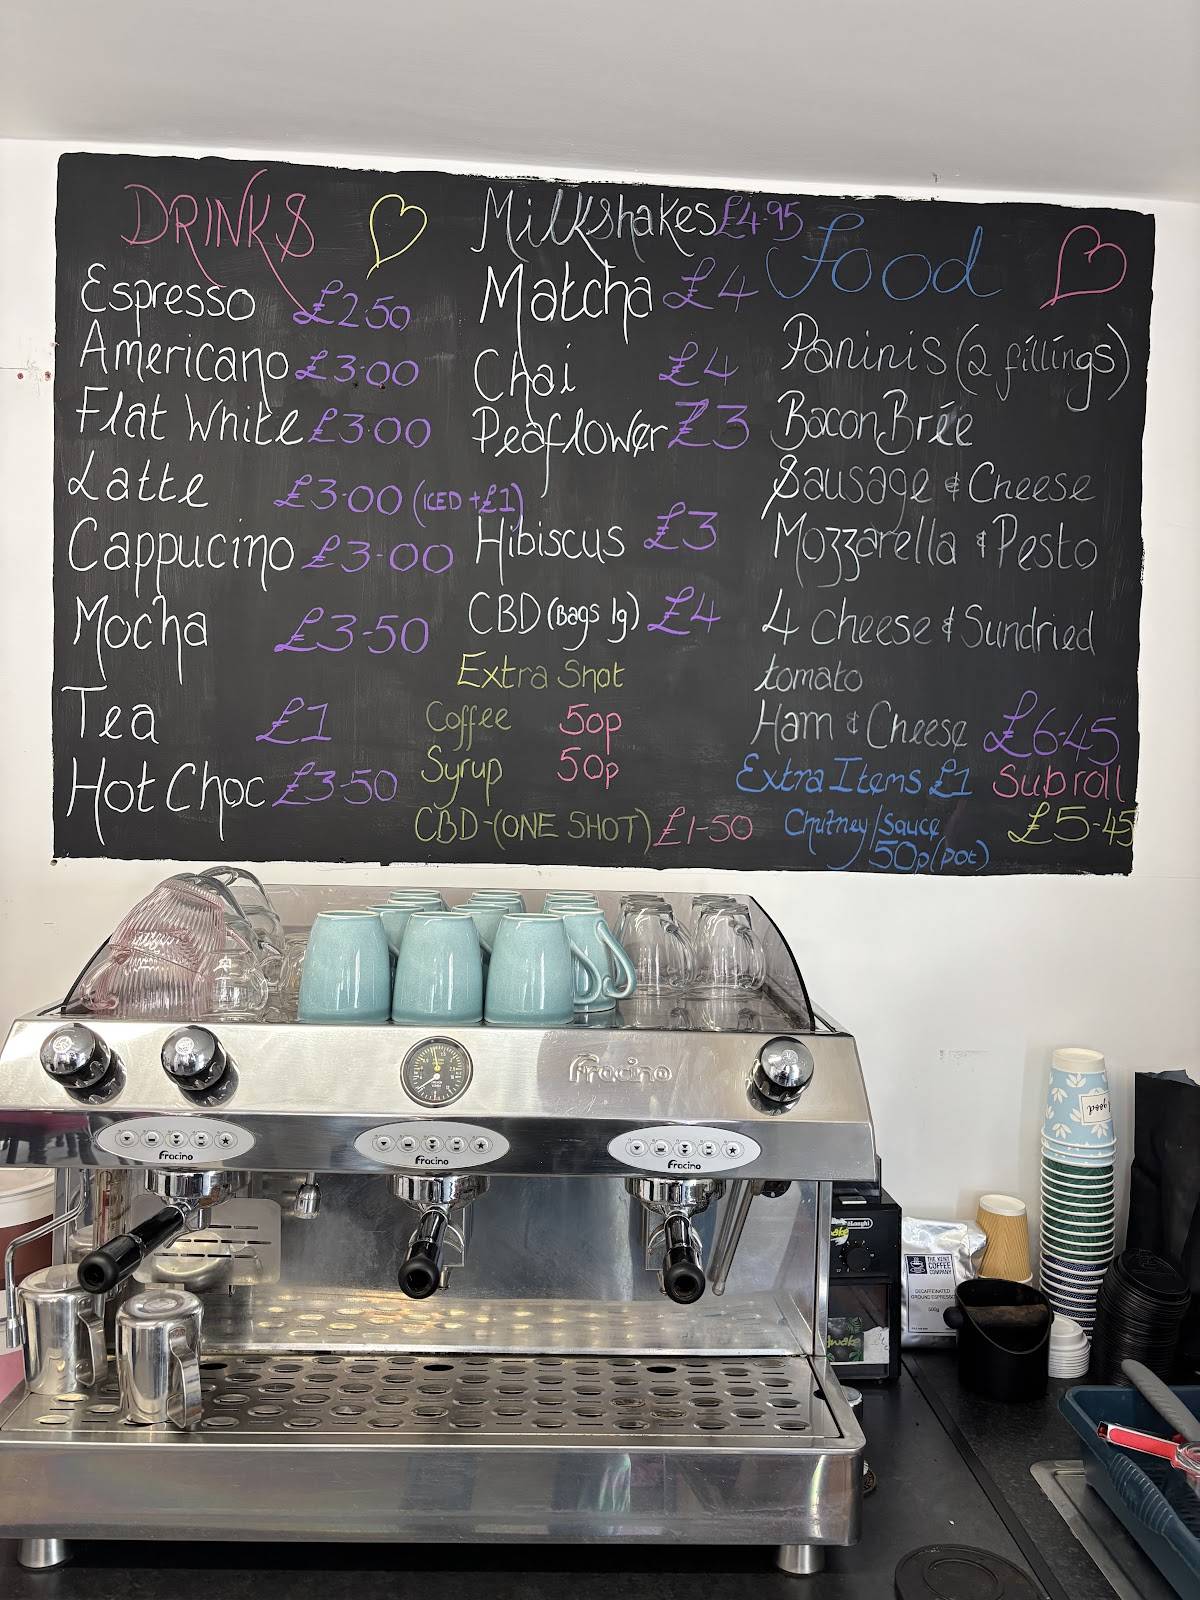 DRINKS
Espresso £2.50
Americano £3.00
Flat White £3.00
Latte £3.00 (ICED +£1)
Cappucino £3-00
Mocha £3-50
Tea £1
Hot Choc £3-50
Milkshakes £4.95
Matcha £4
Chai £4
Peaflower £3
Hibiscus £3
CBD (Bags 1g) £4
Extra Shot
Coffee 50p
Syrup 50p
CBD-(ONE SHOT) £1-50
Food
Paninis (2 fillings)
Bacon Brée
Sausage & Cheese
Mozzarella & Pesto
4 cheese & Sundried
tomato
Ham & Cheese £6-45
Extra Items £1 Sub roll
Chutney/sauce £5-45
50p (pot)
Fracino
Fracino
Fracino
Fracino
DeLonghi
THE KENT
COFFEE
COMPANY
DECAFFEINATED
GROUND ESPRESSO
500g
good